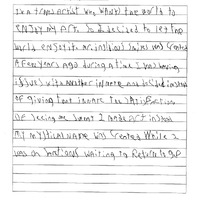 I'm a trans artist who wants the world to
enjoy my art. So I decided to let the
world enjoy it. was created
A few years ago during a time I was having
issues with another inmate and decided instead
of giving that inmate the satisfaction
of seeing me I made art instead
My mystical name was created while I
was on waiting to return to GP